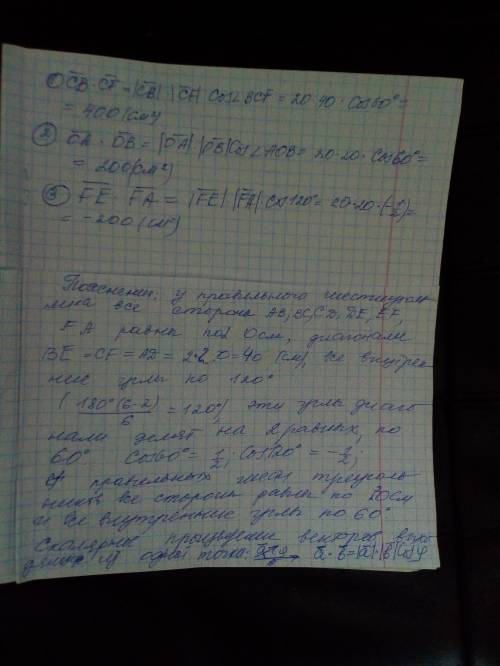 ① CB · CF = |CB| · |CF| cos∠BCF = 20·40 · cos60° =
= 400 (см²)
② OA · OB = |OA| · |OB| cos∠AOB = 20·20 · cos60° =
= 200 (см²)
③ FE · FA = |FE| · |FA| · cos120° = 20·20·(-1/2) =
= -200 (см²)
Пояснения: у правильного шестиуголь
ника все стороны AB, BC, CD, DE, EF,
FA равны по 20см, диагонали
BE = CF = AD = 2·20 = 40 (см), все внутрен
ние углы по 120°
(180°(6-2)/6 = 120°) эти углы диаго
нали делят на 2 равных, по
60° cos60° = 1/2, cos120° = -1/2;
У правильных шести треуголь
ников все стороны равны по 20см
и все внутренние углы по 60°
Скалярное произведение векторов
из одной точки: a · b = |a|·|b| cosφ